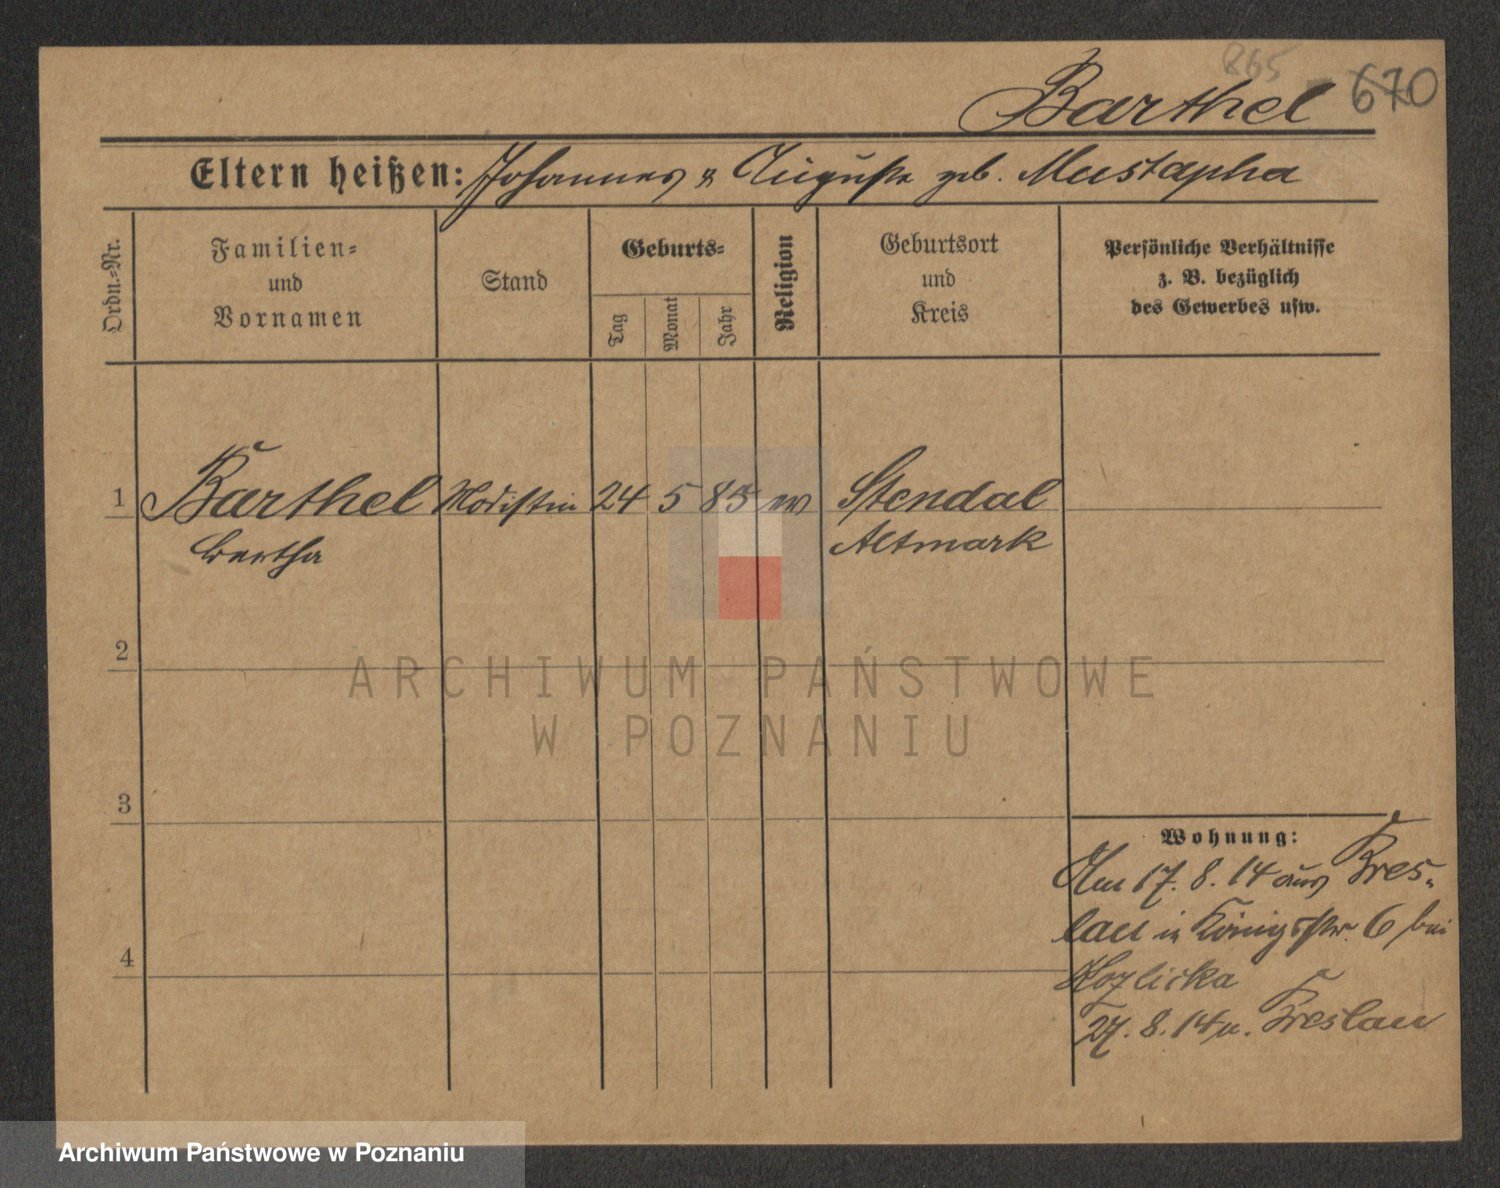 865
Barthel 670
Eltern heißen: Johannes & Auguste geb. Mustapha
Ordn.-Nr.
Familien-
und
Vornamen
Stand
Geburts-
Tag
Monat
Jahr
Religion
Geburtsort
und
Kreis
Persönliche Verhältnisse
z. B. bezüglich
des Gewerbes usw.
1 Barthel Modistin 24 5 85 ev Stendal
Bertha Altmark
2
ARCHIWUM PAŃSTWOWE
W POZNANIU
3
Wohnung:
Am 17. 8. 14 aus Bres-
lau in Königsstr. 6 bei
4
Kozlicka
27. 8. 14 n. Breslau
Archiwum Państwowe w Poznaniu